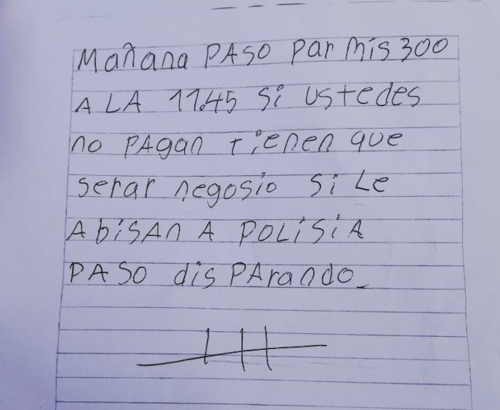 Mañana PASO Par mis 300
A LA 11.45 Si ustedes
no PAgan tienen que
serar negosio si Le
AbiSAn A POLiSiA
PASO disPArando_